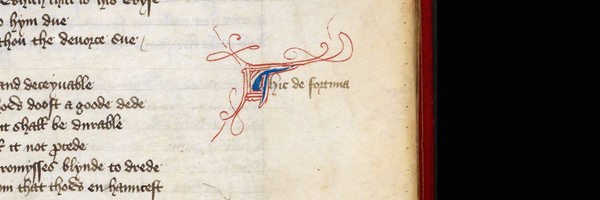 to hym due
thou the deuorce sue /
and deceyuable
dooſt a goode dede
it shall be durable
it not ꝓcede
romysses blynde to drede
that thoeȝ enhauncest
hic de fortuna